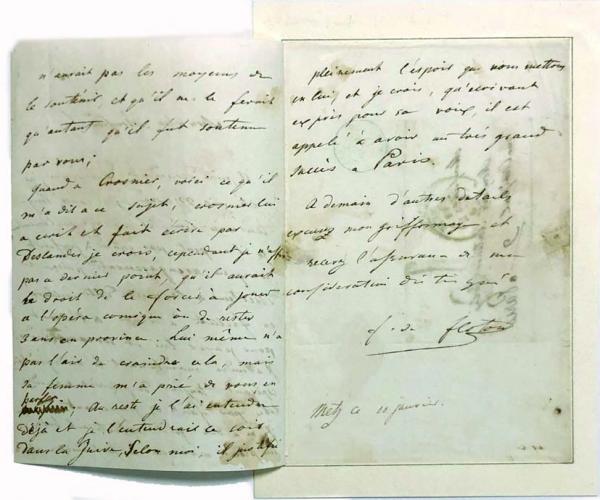 n'aurait pas les moyens de
le soutenir et qu'il ne le ferait
qu'autant qu'il fut soutenu
par vous;
quand a Crosnier, voici ce qu'il
m'a dit a ce sujet; crosnier lui
a ecrit et fait écrire par
Deslandes je crois, cependant je n'affir
pas a dernier point, qu'il aurait
le droit de le forcer, à jouer
a l'opéra comique ou de rester
3 ans en province. Lui même n'a
pas l'air de craindre cela, mais
sa femme m'a prié de vous en
parler. Au reste je l'ai entendu
déjà et je l'entendrais ce soir
dans la Juive, Selon moi il justifi
pleinement l'espoir que vous mettons
en lui, et je crois, qu'ecrivant
exprès pour sa voix, il est
appelé à avoir un très grand
succès a Paris.
A demain d'autres details
excusez mon griffonnage et
recevez l'assurance de ma
consideration dis
f. de flotow
Metz ce 11 janvier.